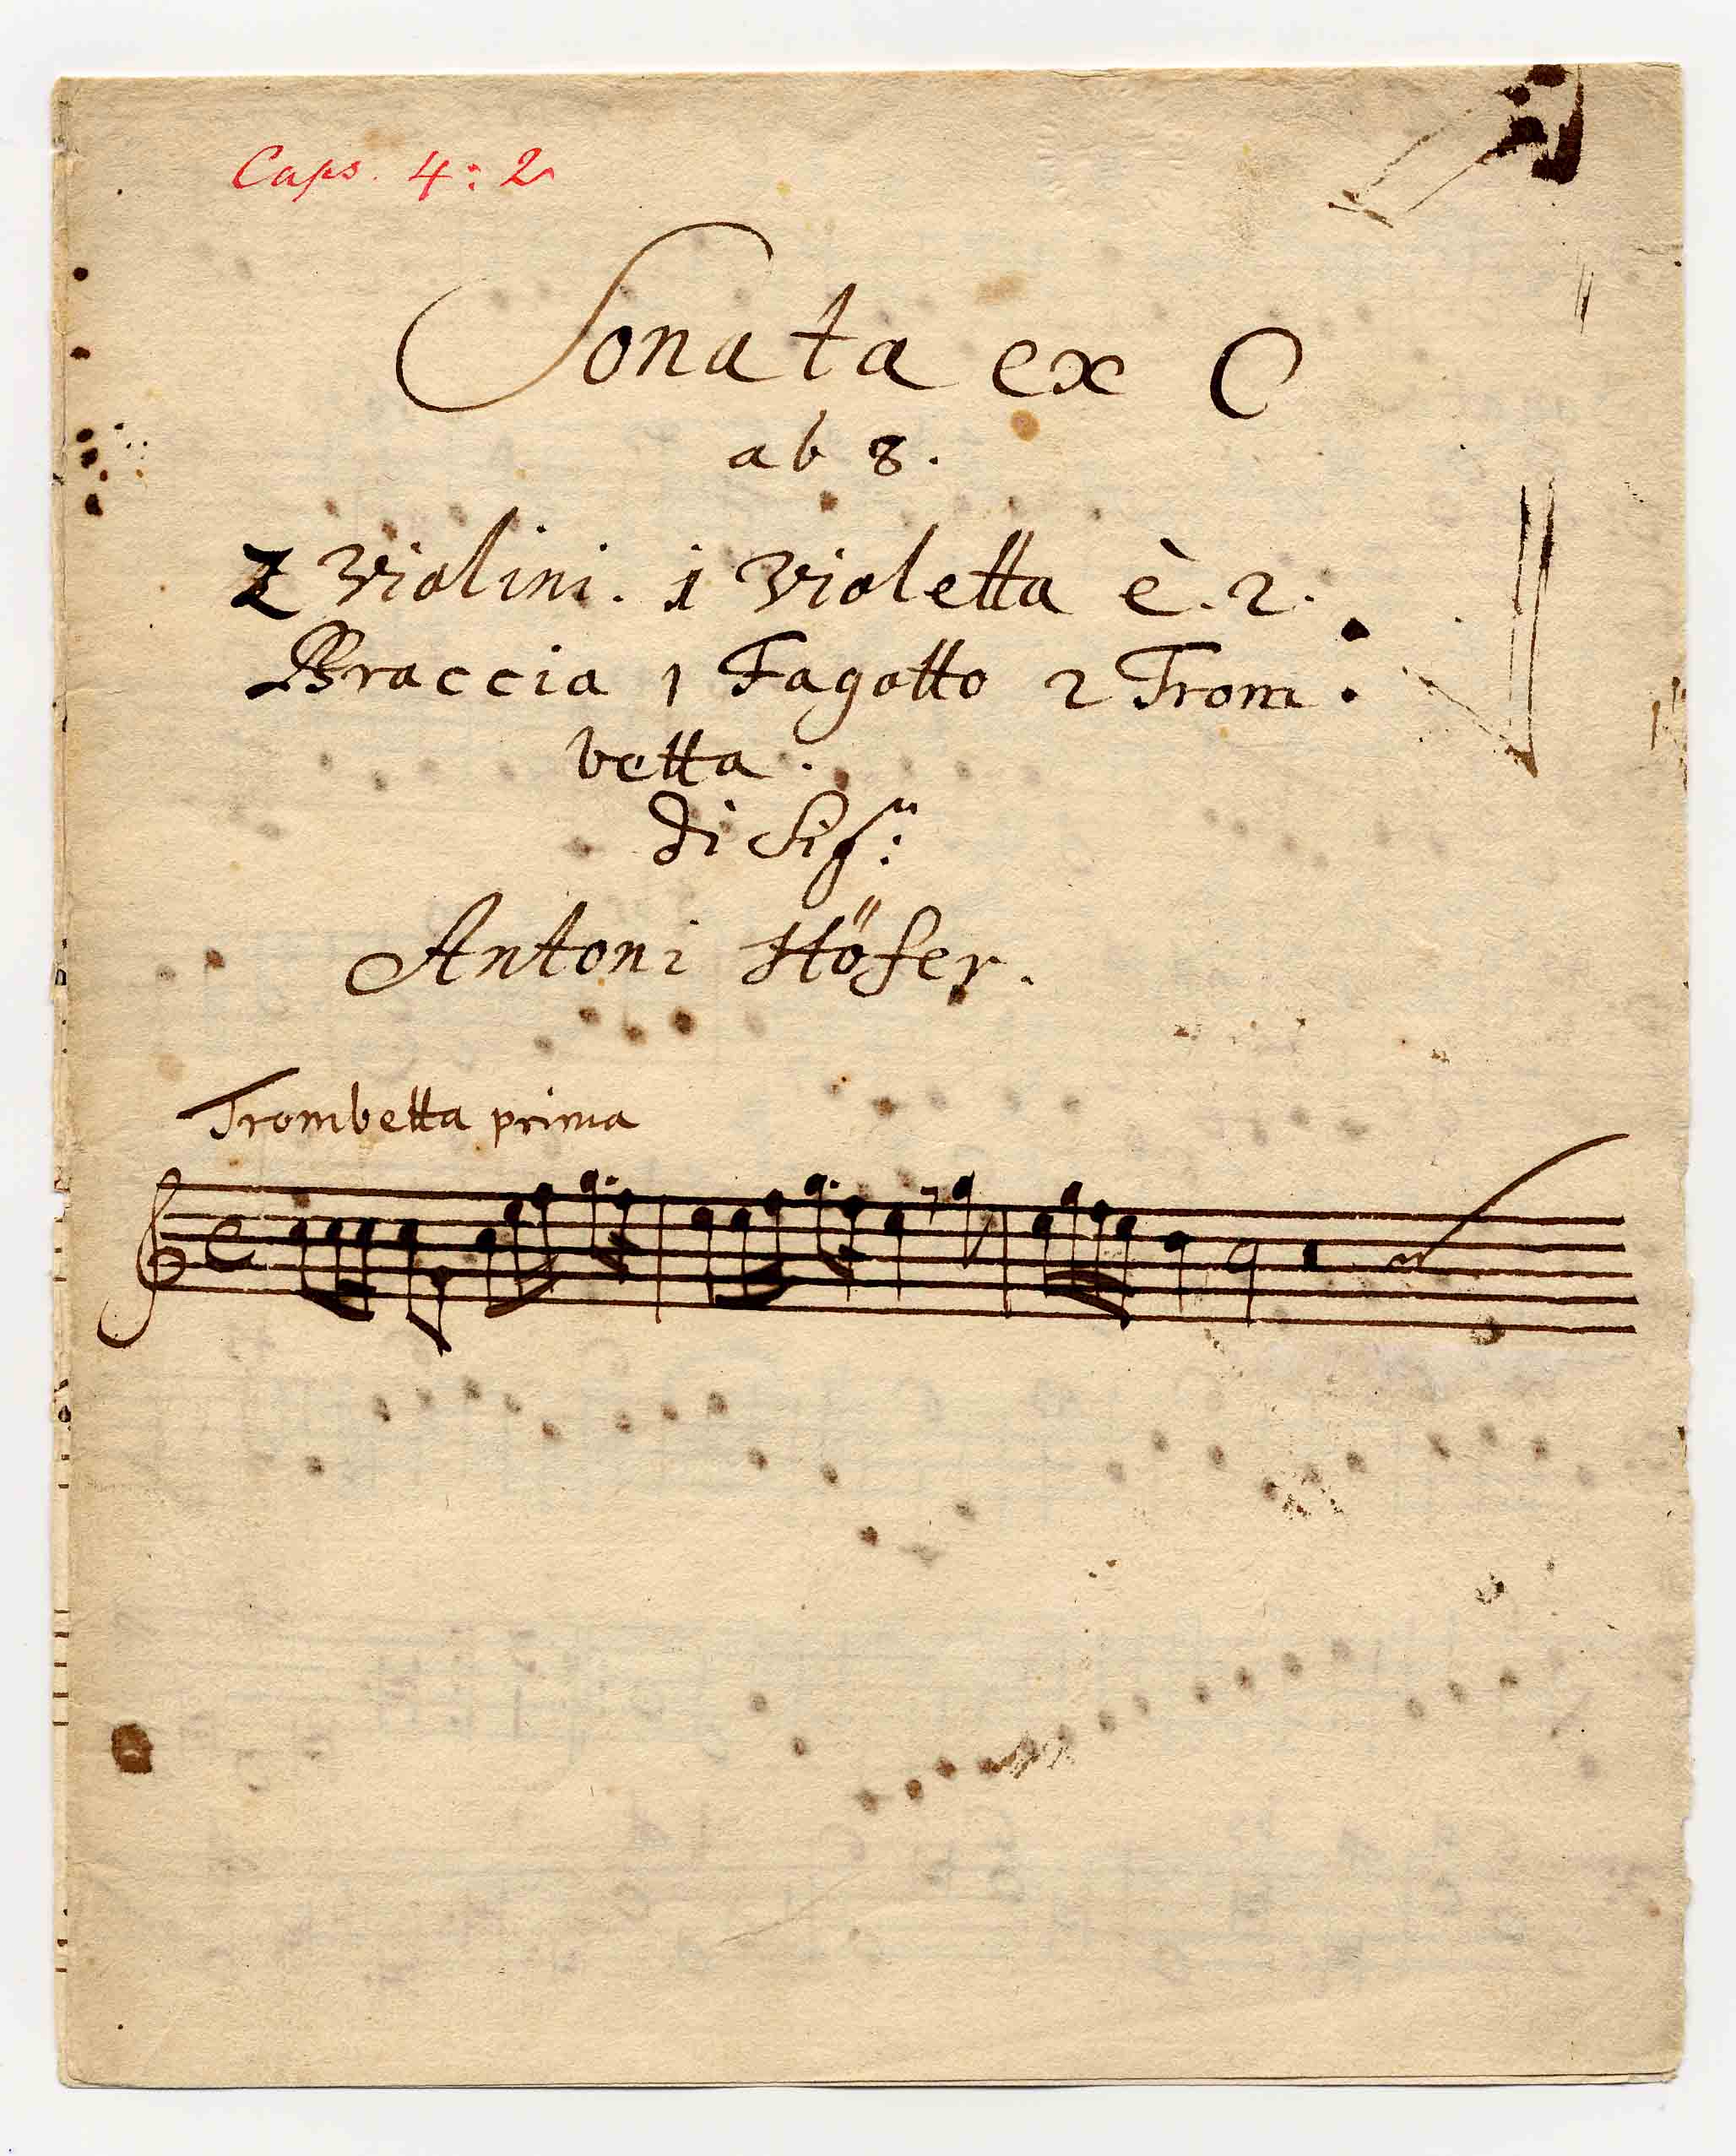 Caps. 4: 2
Sonata ex C
ab 8.
2 Violini. 1 Violetta è. 2.
Braccia 1 Fagotto 2 Trom:
betta.
di Sigr:
Antoni Höfer.
Trombetta prima